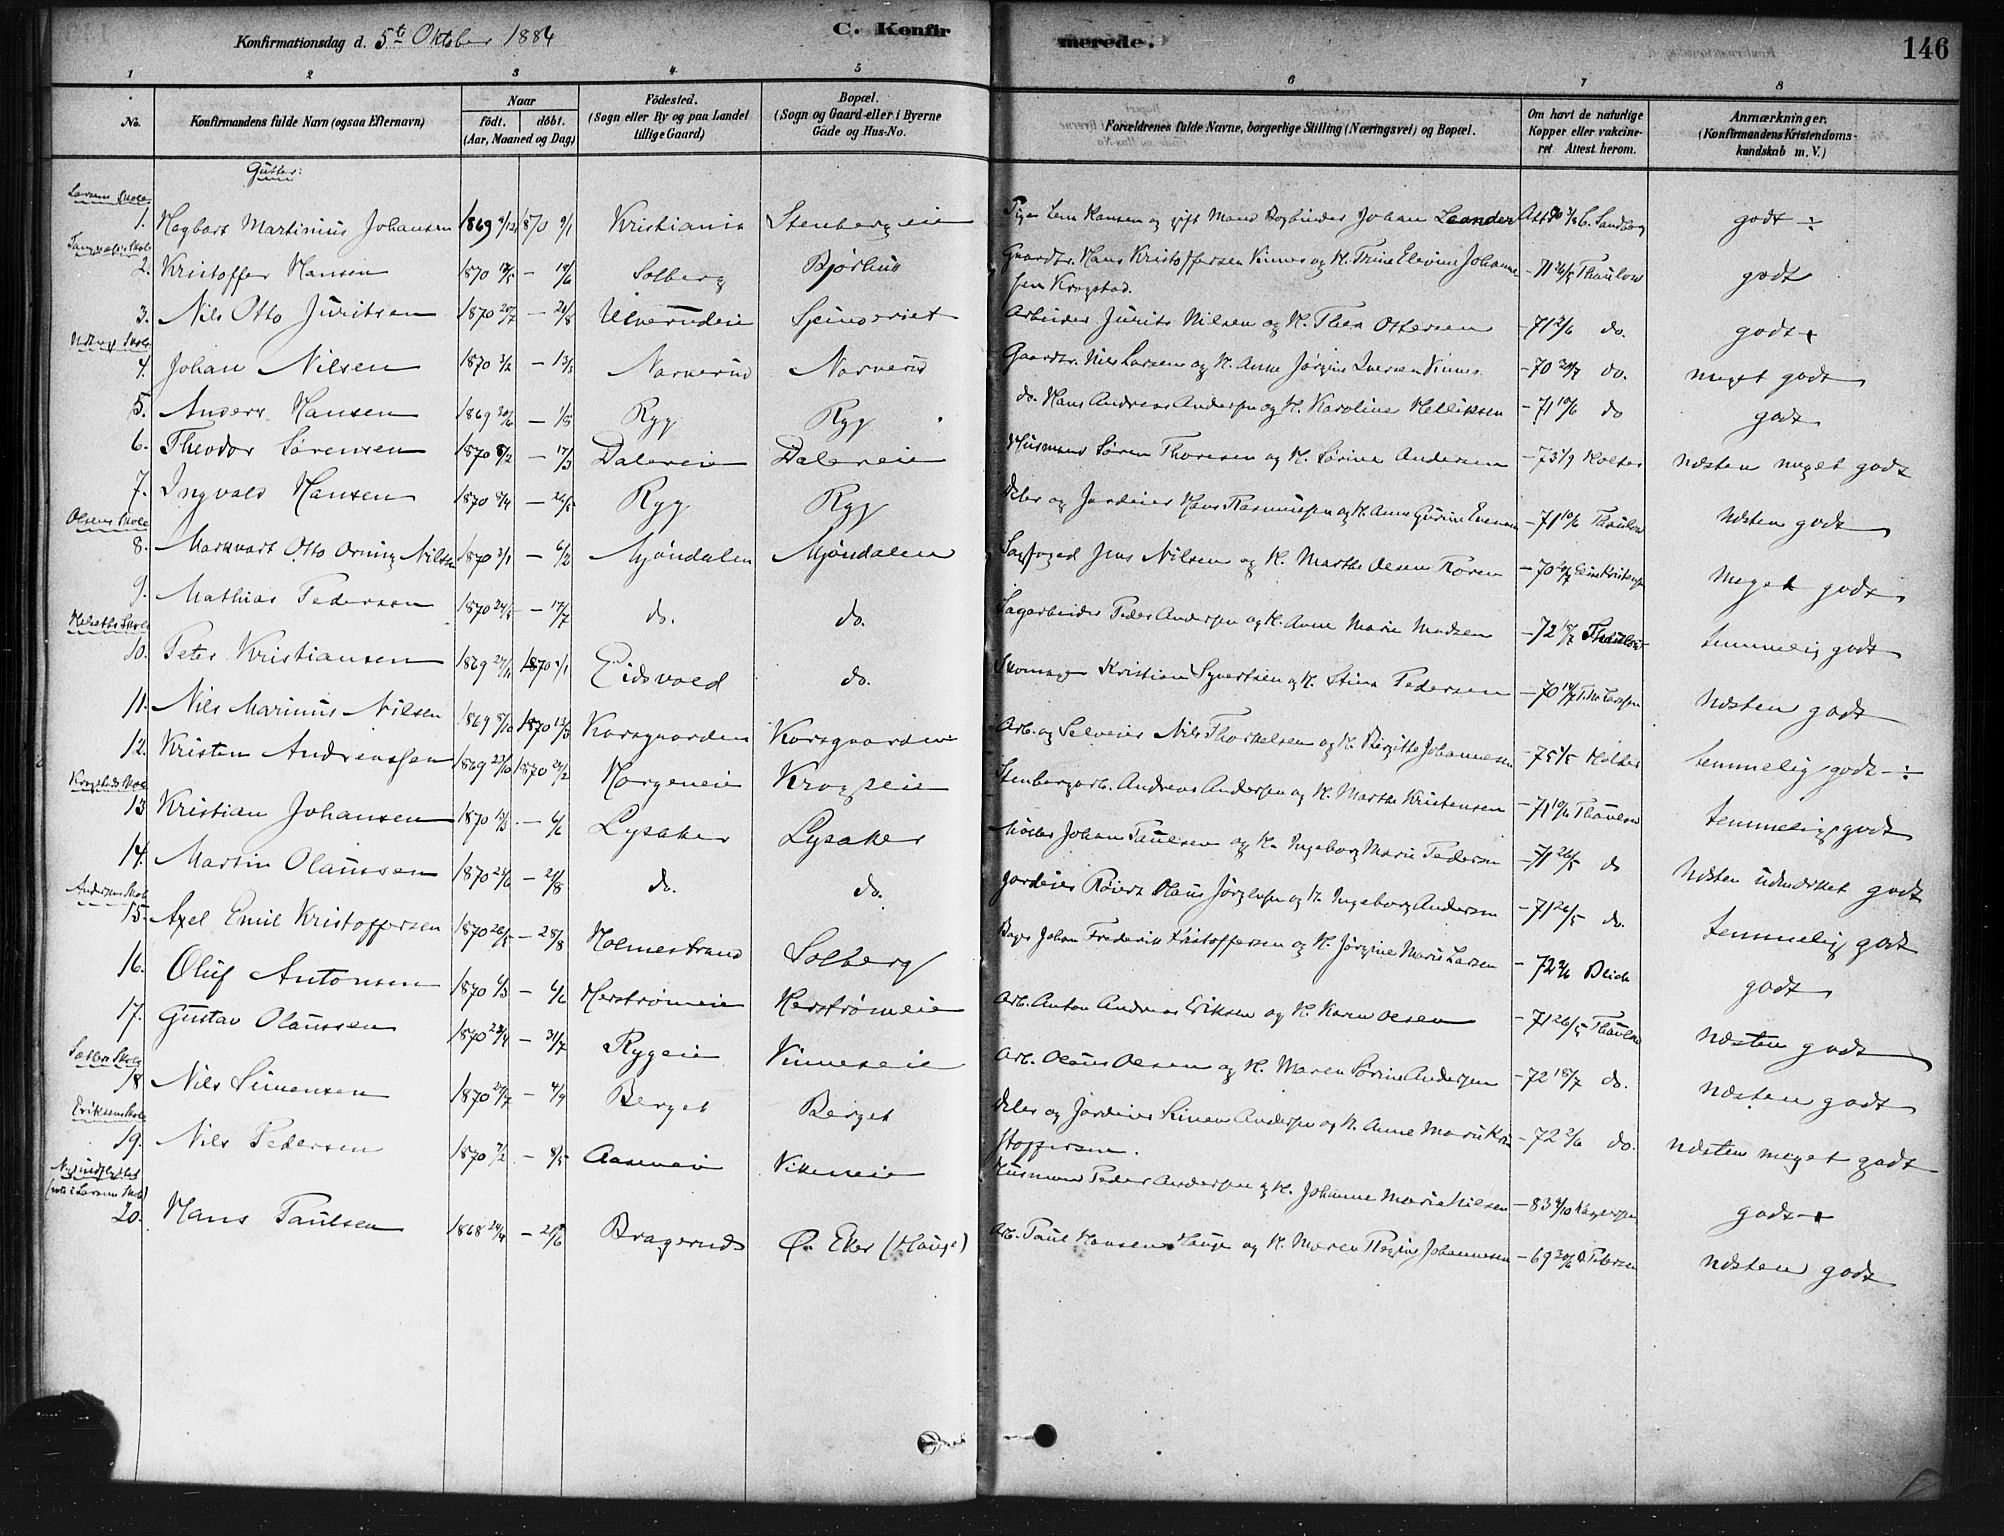 Konfirmationsdag d. 5te Oktober 1884
C. Konfir
merede.
146
1 2 3 4 5 6 7 8
No.
Konfirmandens fulde Navn (ogsaa Efternavn)
Naar
födt. döbt.
(Aar, Maaned og Dag)
Födested.
(Sogn eller By og paa Landet
tillige Gaard)
Bopæl.
(Sogn og Gaard eller i Byerne
Gade og Hus-No.
Forældrenes fulde Navne, borgerlige Stilling (Næringsvei) og Bopæl.
Om havt de naturlige
Kopper eller vakcine-
ret. Attest herom.
Anmærkninger.
(Konfirmandens Kristendoms-
kundskab m. V.)
Gutter:
Larsens Skole
1. Hagbart Martinius Johansen 1869 1870 9/1 Kristiania Stenbergeie Pige Hansen og gift Mand Bogbinder Johan Leander C. Sandberg godt ÷
2. Kristoffer Hansen 1870 — Solberg Bjørhus Gaardbr. Hans Kristoffersen Vinnes og H. Trine Johanne
sen Krogstad. — 71 26/5 Thaulow godt
3. Nils Otto Juritsen 1870 20/7 — 21/8 Ulverudeie Spinderiet Arbeider Jurits Nilsen og H. Thea Ottersen — 71 2/6 do. godt +
4. Johan Nilsen 1870 3/2 — 13/3 Narverud Narverud Gaardbr. Nils Larsen og H. Anne Jørgine Iversen Vinnes — 70 20/7 do. meget godt
5. Anders Hansen 1869 — 1/5 Ryg Ryg do. Hans Andreas Andersen og H. Karoline Helliksen — 71 10/6 do godt
6. Theodor Sørensen 1870 8/2 — 17/3 Dalereie Dalereie Husmand Søren Thoresen og H. Sørine Andersen — 73 1/9 Kolter næsten meget godt
7. Ingvald Hansen 1870 8/4 — 26/5 Ryg Ryg Deler og Jordeier Hans Rasmussen og H. Anne Gurine — 71 10/6 Thaulow næsten godt
Olsens Skole
8. Markvart Otto Orning Nilsen 1870 3/1 — 6/2 Mjøndalen Mjøndalen Sagfoged Jens Nilsen og H. Marthe Olsen — 70 meget godt
9. Mathias Pedersen 1870 24/5 — 17/7 do. do. Sagarbeider Peder Andersen og H. Anne Marie Madsen — 72 18/7 Thaulow temmelig godt
10. Peter Kristiansen 1869 27/11 1870 Eidsvold do. Skomager Kristian Syvertsen og H. Stina Pedersen — 70 14/7 næsten godt
11. Nils Marinius Nilsen 1869 8/10 1870 13/3 Korsgaarden Korsgaarden Arb. og Selveier Nils Thorkelsen og H. Birgitte Johannesen — 75 Kolter temmelig godt — ÷
12. Kristen Andreassen 1869 23/10 1870 27/2 Horgeneie Krogseie Stenbergarb. Andreas Andersen og H. Marthe Kristensen — 71 10/6 Thaulow temmelig godt
Krogstads Skole
13. Kristian Johansen 1870 13/3 — 6/6 Lysaker Lysaker Møller Johan Paulsen og H. Ingeborg Marie Pedersen — 71 26/5 do næsten udmærket godt
14. Martin Olaussen 1870 — 21/8 do. do. Jordeier Olaus Jørgensen og H. Ingeborg Andersen — 71 26/5 do. temmelig godt
Andersens Skole
15. Axel Emil Kristoffersen 1870 26/5 — 28/8 Holmestrand Solberg Bager Johan Frederik Kristoffersen og H. Jørgine Marie Larsen — 72 godt
16. Oluf Antonsen 1870 6/3 — 6/6 Herstrømeie Herstrømeie Arb. Anton Andreas Eriksen og H. Karen Olsen — 71 26/5 Thaulow næsten godt
17. Gustav Olaussen 1870 — 31/7 Rygeie Vinneseie Arb. Olaus Olsen og H. Maren Sørine Andersen — 72 18/7 do. næsten godt
18. Nils Simensen 1870 27/7 — 4/9 Berget Berget Deler og Jordeier Simen Andersen og H. Anne Marie Kri
stoffersen. — 72 2/6 do. næsten meget godt
Eriksens Skole
19. Nils Pedersen 1870 7/2 — 8/5 Vikeneie Husmand Peder Andersen og H. Johanne Marie Nilsen — 83 godt +
(vis i Larsens Skole)
20. Hans Paulsen 1868 24/4 — Bragernes Ø. Eker (Hauge) Arb. Paul Hansen Hauge og H. Maren Regine Johannesen — 69 20/6 Petersen næsten godt